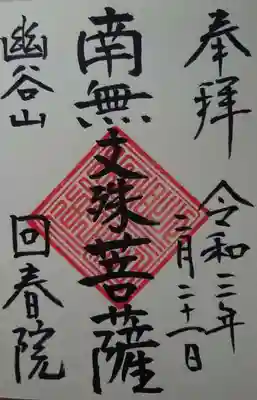 奉拝
令和三年
二月二十一日
南無文殊菩薩
幽谷山
回春院